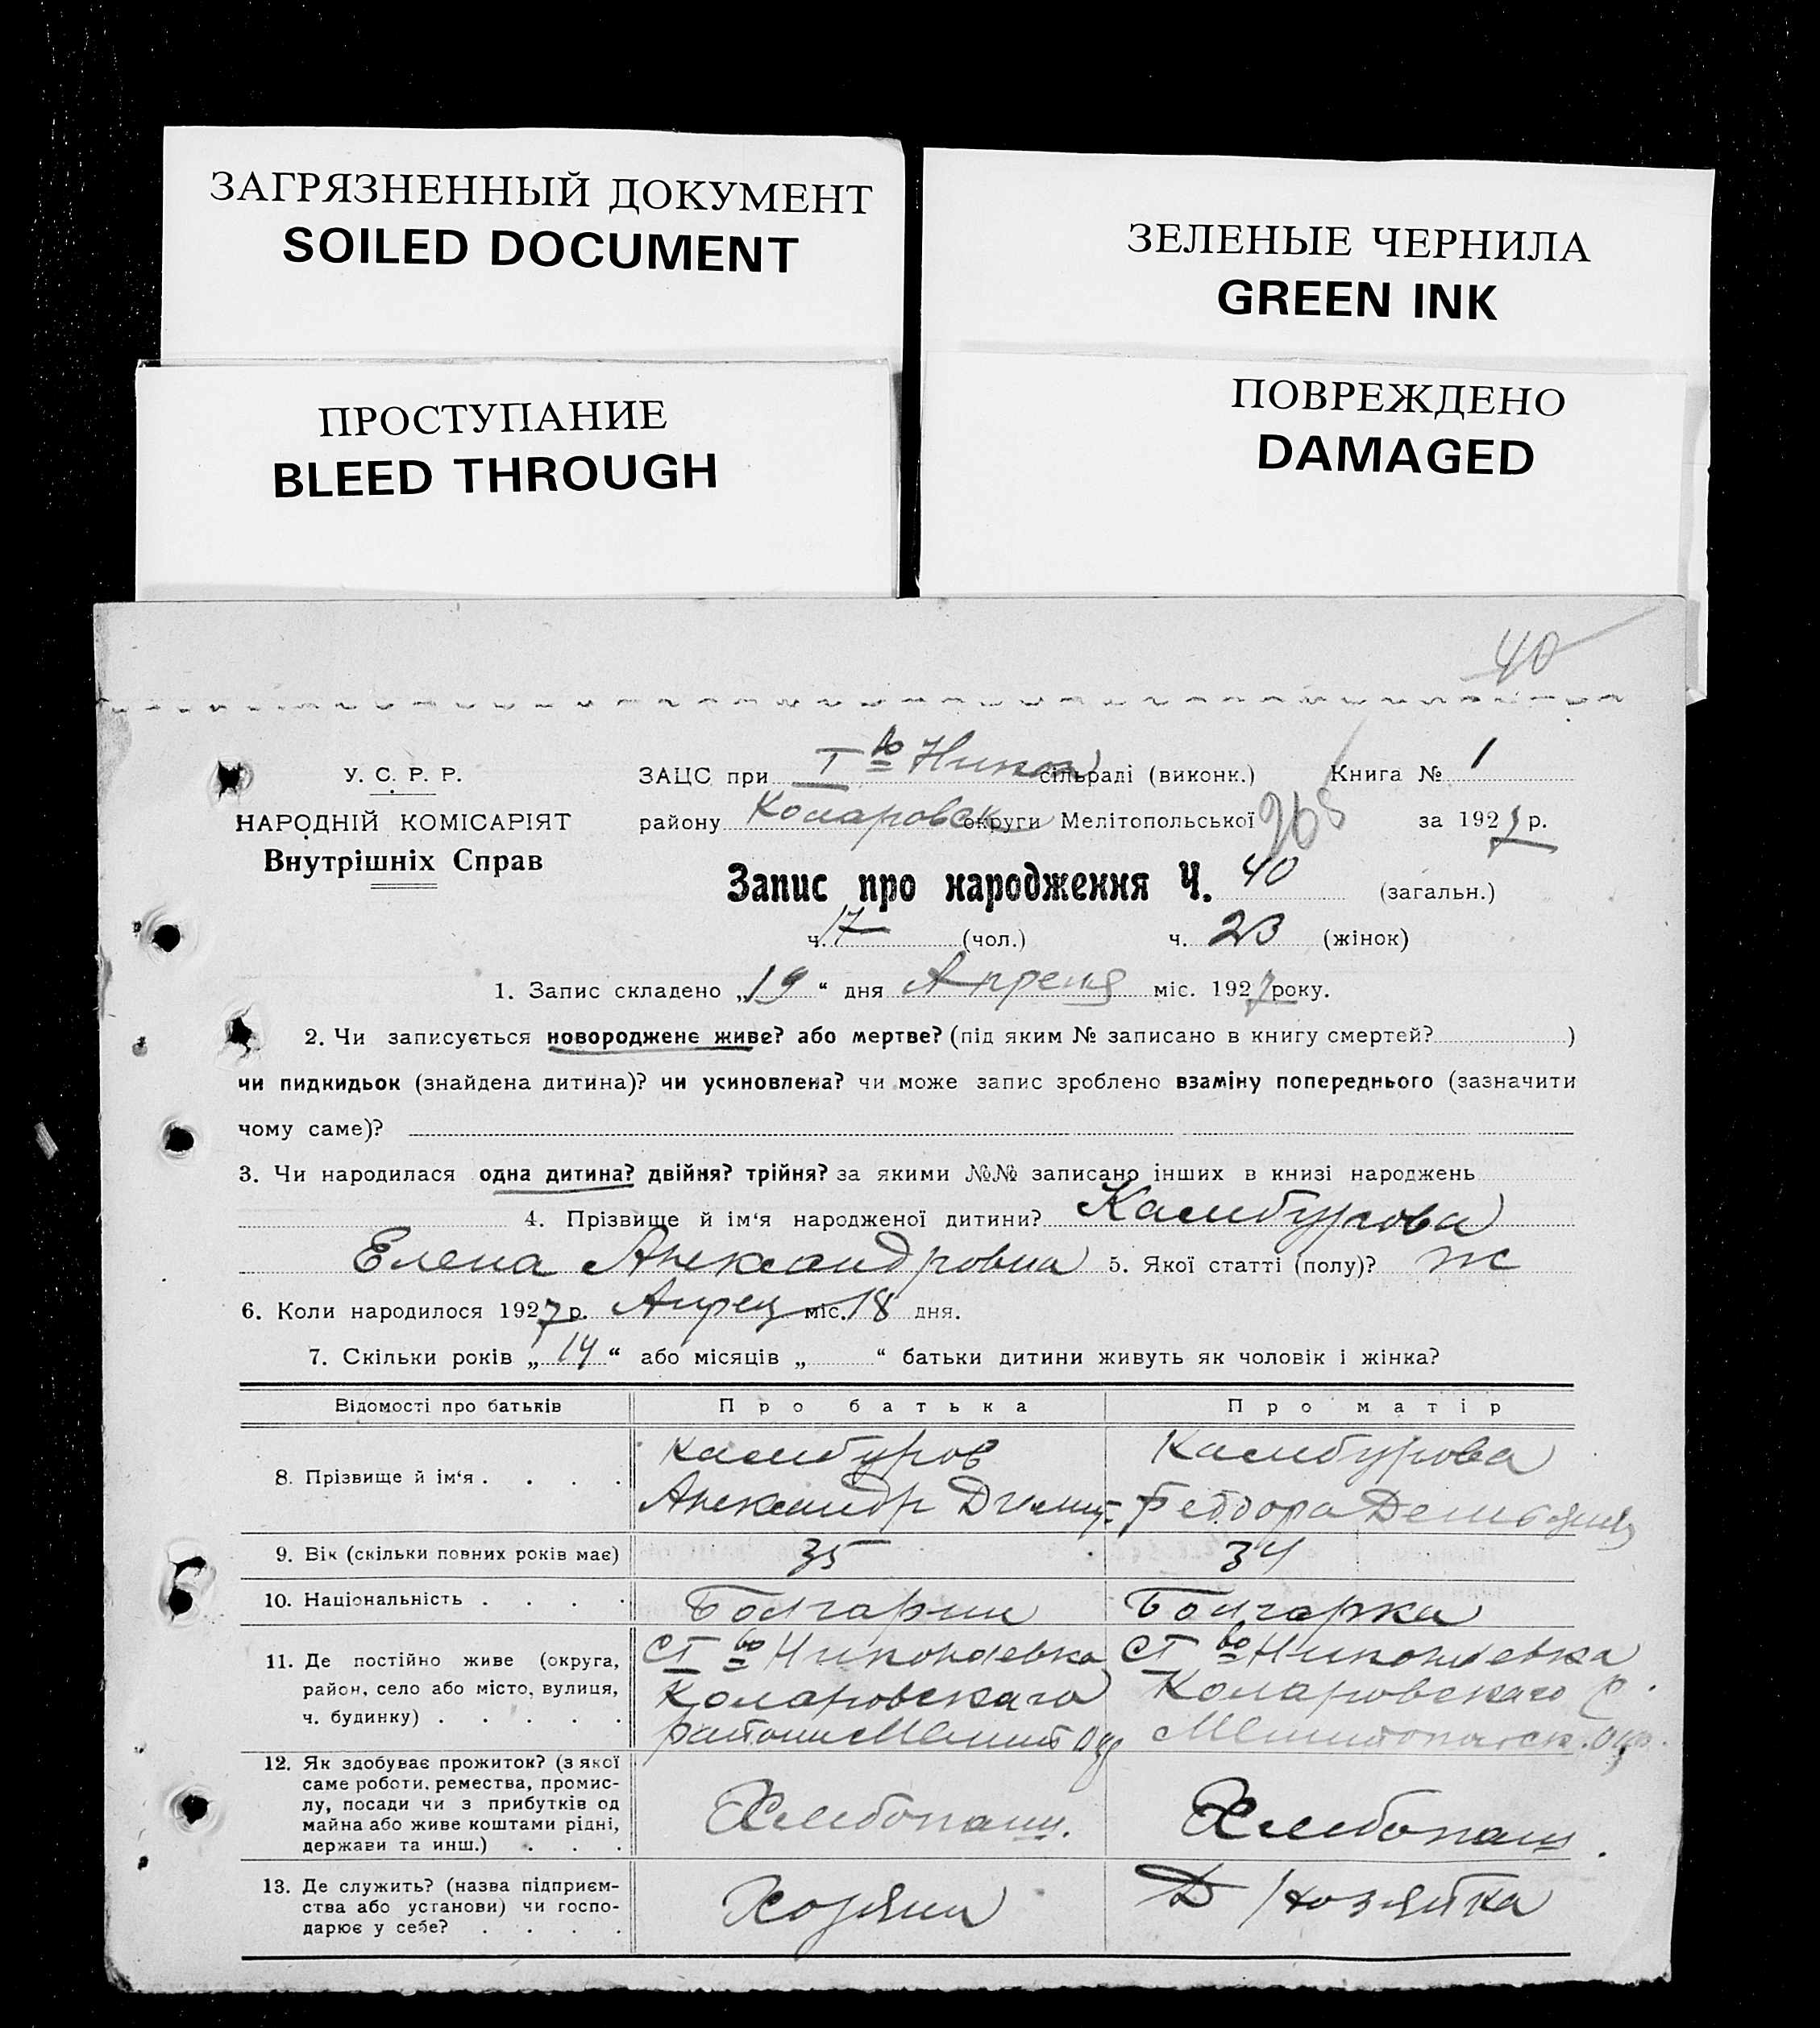 ЗАГРЯЗНЕННЫЙ ДОКУМЕНТ
SOILED DOCUMENT
ЗЕЛЕНЫЕ ЧЕРНИЛА
GREEN INK
ПРОСТУПАНИЕ
BLEED THROUGH
ПОВРЕЖДЕНО
DAMAGED
40
У. С. Р. Р.
НАРОДНІЙ КОМІСАРІЯТ
Внутрішніх Справ
ЗАЦС при Т во Никол сільралі (виконк.) Книга № 1
району Коларовск округи Мелітопольської за 1927 р.
Запис про народження Ч. 40 (загальн.)
ч. 17 (чол.) ч. 23 (жінок)
1. Запис складено „19“ дня Апреля міс. 1927 року.
2. Чи записується новороджене живе? або мертве? (під яким № записано в книгу смертей? )
чи пидкидьок (знайдена дитина)? чи усиновлена? чи може запис зроблено взаміну попереднього (зазначити
чому саме)?
3. Чи народилася одна дитина? двійня? трійня? за якими №№ записано інших в книзі народжень
4. Прізвище й ім‘я народженої дитини? Камбурова
Елена Александровна 5. Якої статті (полу)? ж
6. Коли народилося 1927 р. Апрел міс. 18 дня.
7. Скільки років „14“ або місяців „ “ батьки дитини живуть як чоловік і жінка?
Відомості про батьків Про батька Про матір
8. Прізвище й ім‘я . . . .
Камбуров
Александр Димит
Камбурова
Феодора
9. Вік (скільки повних років має) 35 34
10. Національність . . . . Болгарин Болгарка
11. Де постійно живе (округа,
район, село або місто, вулиця,
ч. будинку) . . . . .
СТ во Николаевка
Коларовскаго
района Мелит Окр
СТ во Николаевка
Коларовскаго р.
Мелитопольск. Окр.
12. Як здобуває прожиток? (з якої
саме роботи, ремества, промис-
лу, посади чи з прибутків од
майна або живе коштами рідні,
держави та инш.) . . .
Хлебопаш.
Хлебопаш.
13. Де служить? (назва підприєм-
ства або установи) чи госпо-
дарює у себе? . . . .
Хозяин
Д/хозяйка